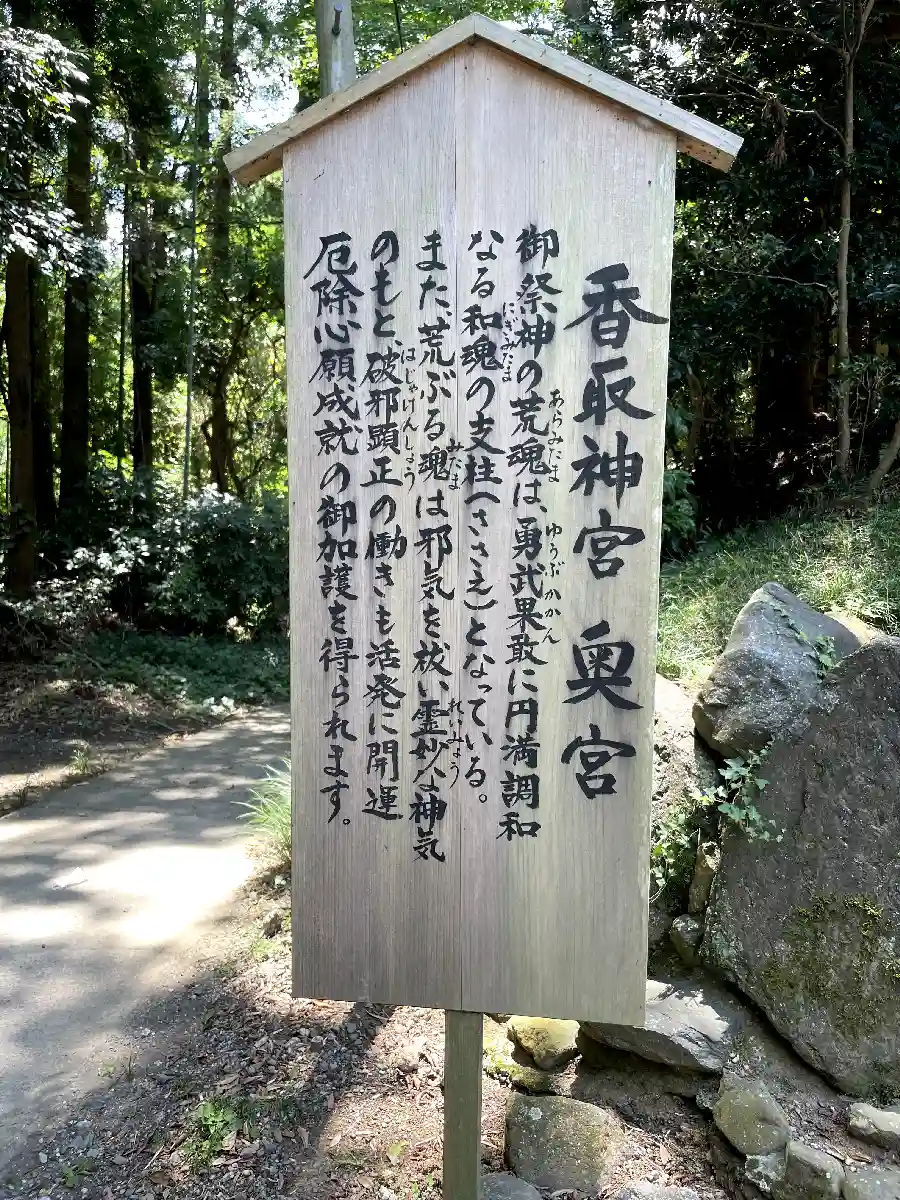 香取神宮 奥宮
御祭神の荒魂は、勇武果敢に円満調和
あらみたま
ゆうぶかかん
なる和魂の支柱(ささえ)となっている。
にぎみたま
また、荒ぶる魂は邪気を祓い霊妙な神気
みたま
れいみょう
のもと、破邪顕正の働きも活発に開運
はじゃけんしょう
厄除心願成就の御加護を得られます。